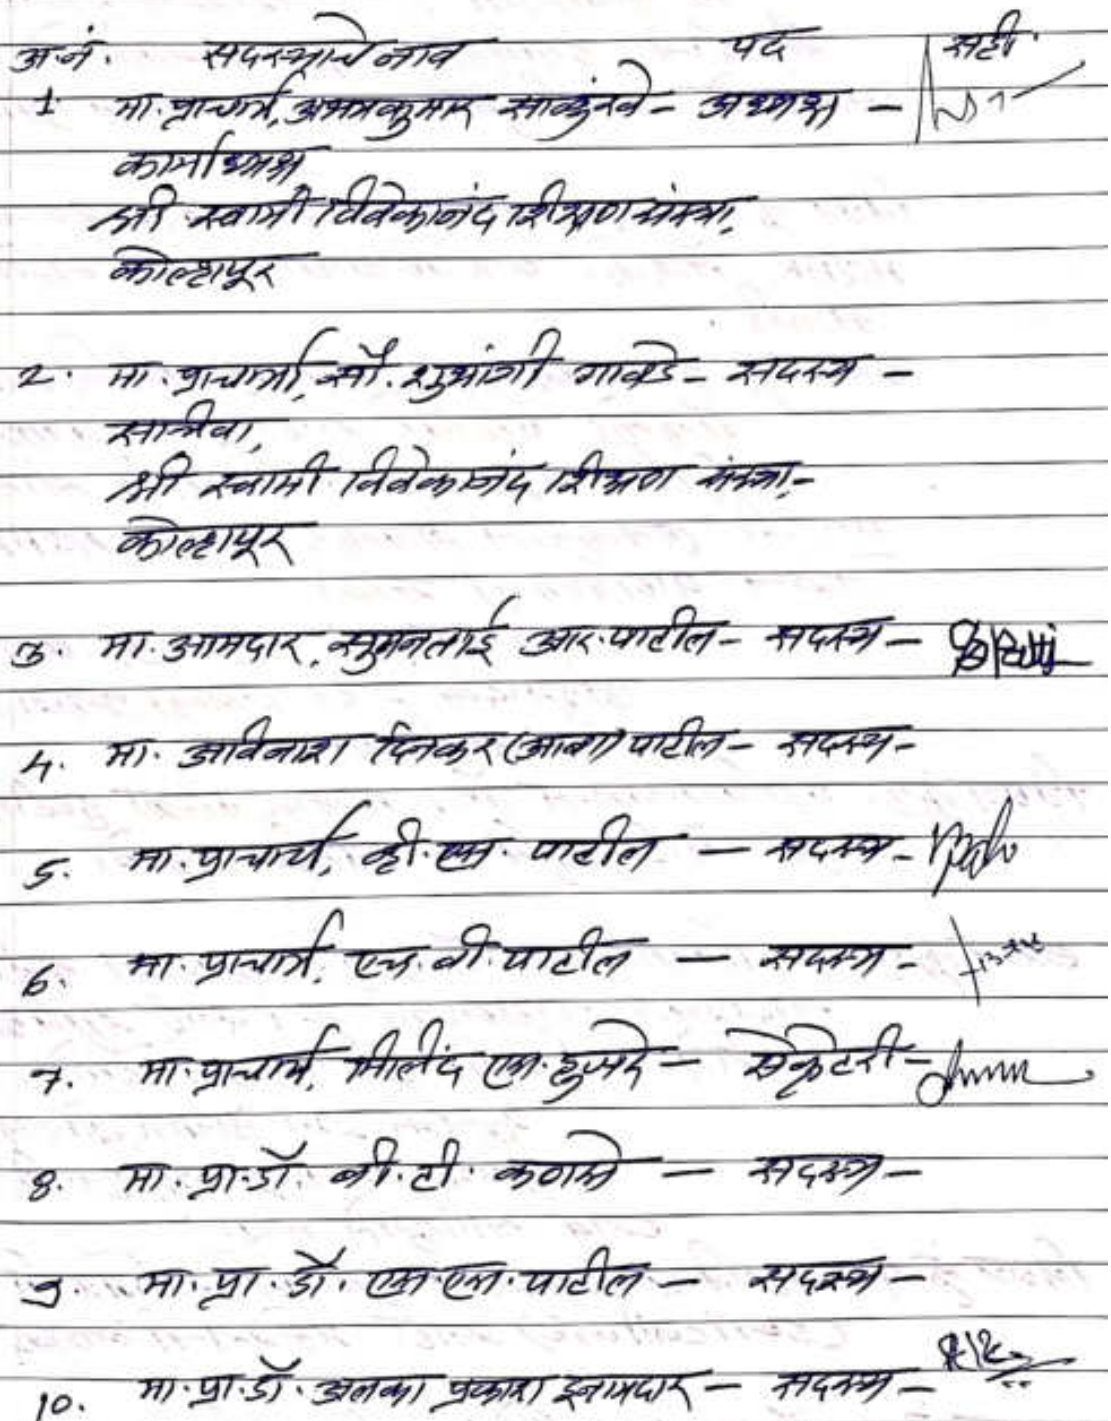 अ.नं. सदस्याचे नाव पद सही.
1 मा. प्राचार्य, अभयकुमार साळुंखे - अध्यक्ष -
कार्याध्यक्ष
श्री स्वामी विवेकानंद शिक्षण संस्था,
कोल्हापूर
2. मा. प्राचार्या, सौ. शुभांगी गावडे - सदस्य -
सचिवा,
श्री स्वामी विवेकानंद शिक्षण संस्था,-
कोल्हापूर
3. मा. आमदार, सुमनताई आर. पाटील - सदस्य -
4. मा. अविनाश दिनकर (आबा) पाटील - सदस्य -
5. मा. प्राचार्य, व्ही. एम. पाटील - सदस्य -
6. मा. प्राचार्य, एच. बी. पाटील - सदस्य -
7. मा. प्राचार्य, मिलींद एम. हुजरे - सेक्रेटरी -
8. मा. प्रा. डॉ. बी. टी. कणसे - सदस्य -
9. मा. प्रा. डॉ. एम. एम. पाटील - सदस्य -
10. मा. प्रा. डॉ. अलका प्रकाश इनामदार - सदस्य -